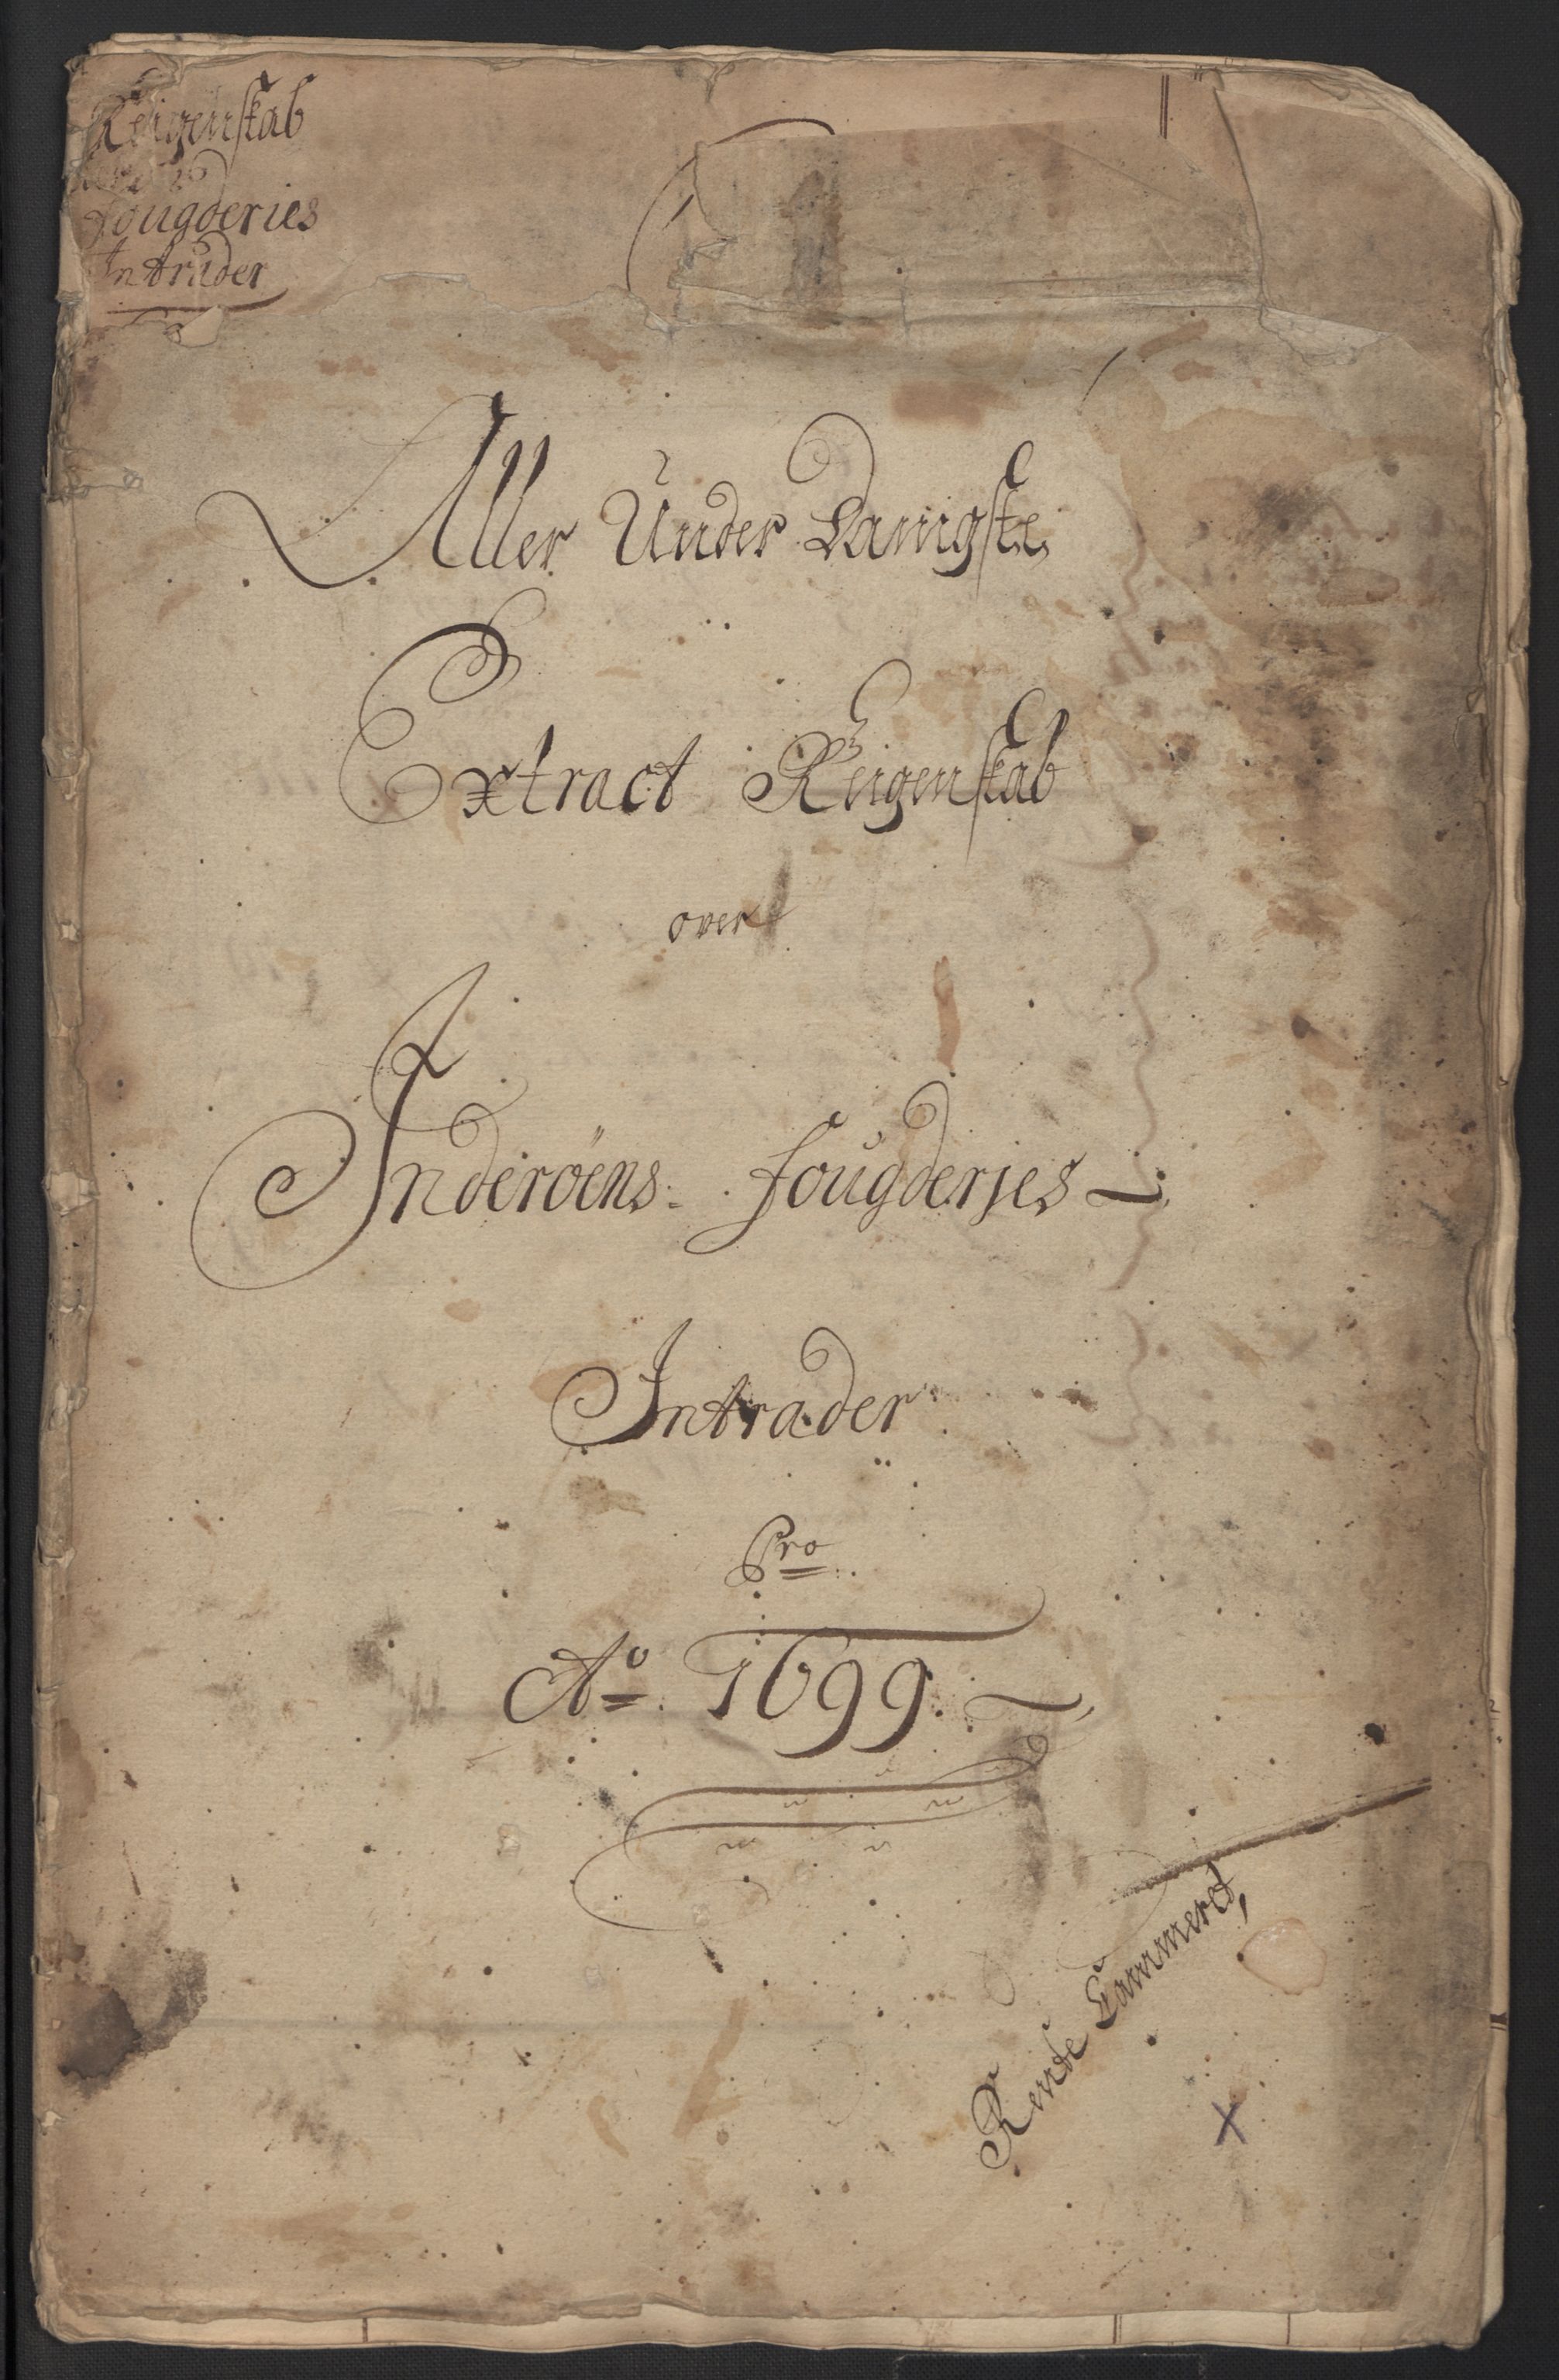 Reigenskab
Fougderies
Intrader
Aller Under Danigste
Extract Reigenskab
over
Inderöens Fougderjes
Intrader
Pro
Ao 1699
Rente Cammeret,
X